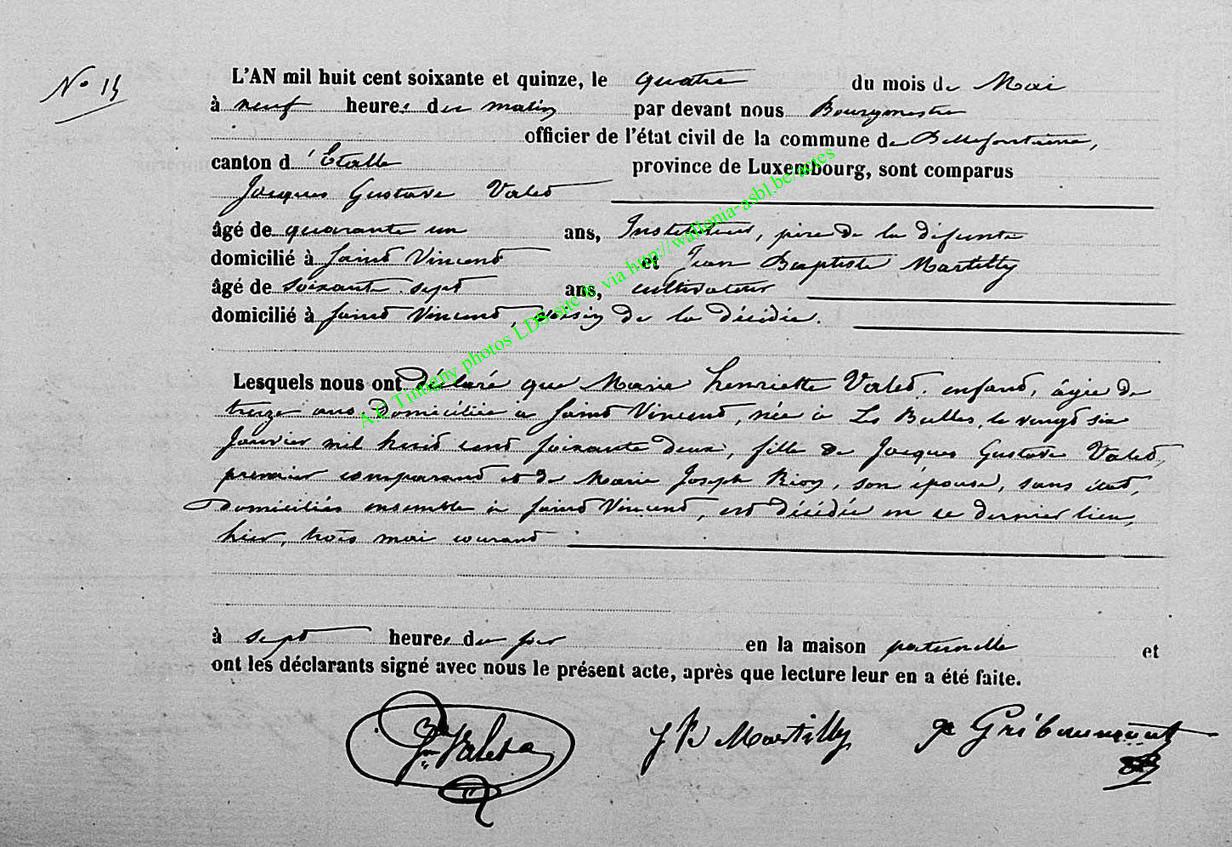 No 15
L'AN mil huit cent soixante et quinze, le quatre du mois de Mai
à neuf heures du matin par devant nous Bourgmestre
officier de l'état civil de la commune de Bellefontaine,
canton d'Etalle province de Luxembourg, sont comparus
Jacques Gustave Valet
âgé de quarante un ans, Instituteur, père de la défunte
domicilié à Saint Vincent et Jean Baptiste Martilly
âgé de soixante sept ans, cultivateur
domicilié à Saint Vincent, voisin de la décédée.
Lesquels nous ont déclaré que Marie henriette Valet, enfant, âgée de
treize ans, domiciliée à Saint Vincent, née à Les Bulles, le vingt six
Janvier mil huit cent soixante deux, fille de Jacques Gustave Valet,
premier comparant et de Marie Joseph Rion, son épouse, sans état,
domiciliés ensemble à Saint Vincent, est décédée en ce dernier lieu,
hier, trois mai courant
à sept heures du soir en la maison paternelle et
ont les déclarants signé avec nous le présent acte, après que lecture leur en a été faite.
Valet JB Martilly Gribaumont
photos LDS site via http://wallonia-asbl.be/actes